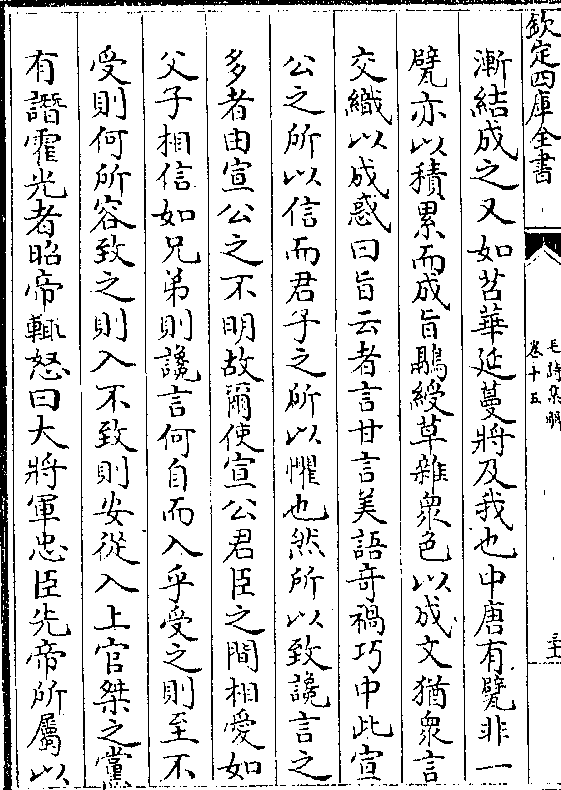 欽定四庫全書
毛詩集解
卷十五
漸結成之又如苕華延蔓將及我也中唐有甓非一
甓亦以積累而成旨鷊綬草雜衆色以成文猶衆言
交織以成惑曰旨云者言甘言美語奇禍巧中此宣
公之所以信而君子之所以懼也然所以致讒言之
多者由宣公之不明故爾使宣公君臣之間相愛如
父子相信如兄弟則讒言何自而入乎受之則至不
受則何所容致之則入不致則安從入上官桀之黨
有譖霍光者昭帝輒怒曰大將軍忠臣先帝所屬以